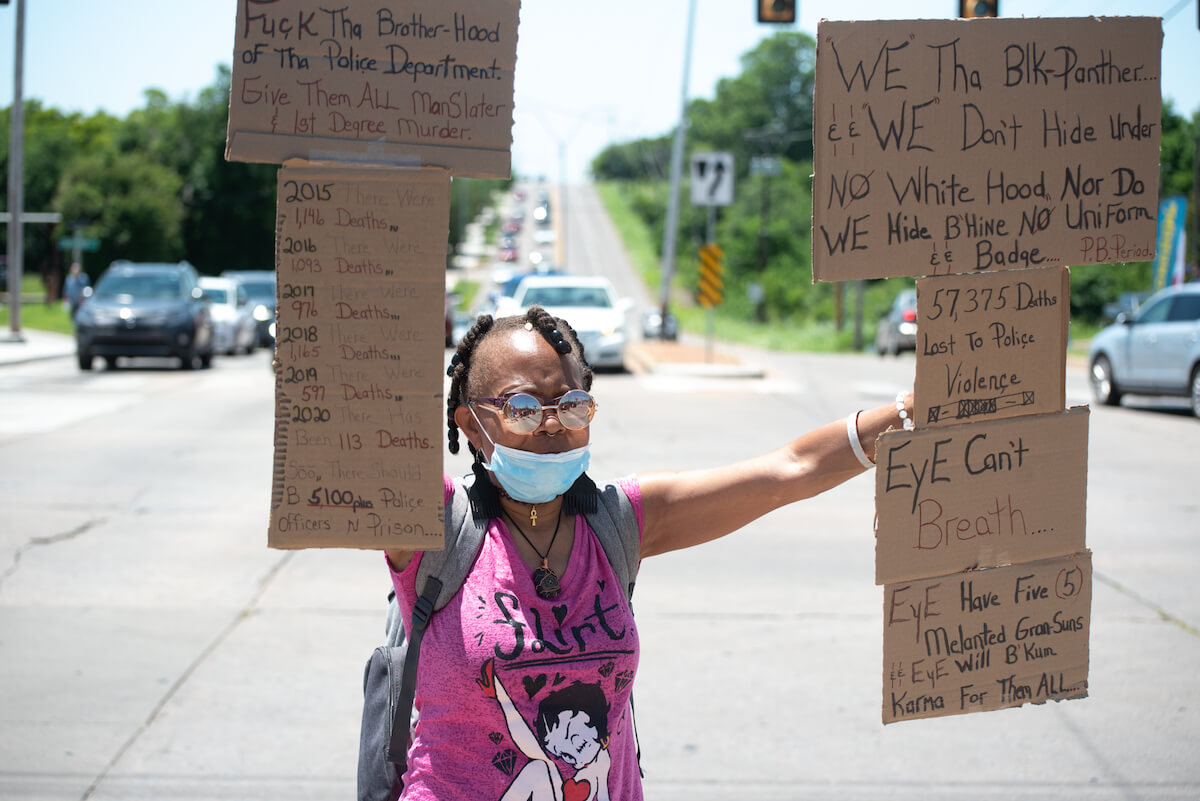 Fuck Tha Brother-Hood
of Tha Police Department.
Give Them ALL ManSlater
& 1st Degree Murder.
2015 There Were
1,146 Deaths,,,
2016 There Were
1,093 Deaths,,,
2017 There Were
976 Deaths...
2018 There Were
1,165 Deaths...
2019 There Were
597 Deaths...
2020 There Has
Been 113 Deaths.
Soo, There Should
B 5100 plus Police
Officers N Prison....
"WE" Tha Blk-Panther....
& "WE" Don't Hide Under
NO White Hood, Nor Do
WE Hide B'Hine NO Uniform
& Badge.... P.B. Period.
57,375 Deaths
Lost To Police
Violence
EyE Can't
Breath....
EyE Have Five (5)
Melanted Gran-Suns
& EyE Will B'Kum
Karma For Them ALL....
flirt